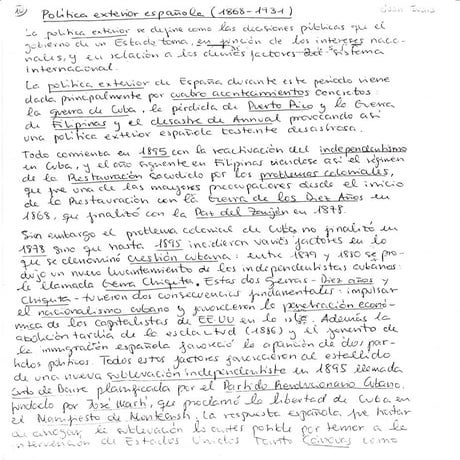 Política exterior española (1868-1931)
La política exterior se define como las decisiones públicas que el
gobierno de un Estado toma, en función de los intereses nacio-
nales, y en relación a los demás factores del sistema
internacional.
La política exterior de España durante este periodo viene
dada principalmente por cuatro acontecimientos concretos:
la guerra de Cuba, la pérdida de Puerto Rico y la Guerra
de Filipinas y el desastre de Annual provocando así
una política exterior española bastante desastrosa.
Todo comienza en 1895 con la reactivación del independentismo
en Cuba, y el año siguiente en Filipinas viendose así el régimen
de la Restauración sacudido por los problemas coloniales,
que fue una de las mayores preocupaciones desde el inicio
de la Restauración con la Guerra de los Diez Años en
1868, que finalizó con la Paz del Zanjón en 1878.
Sin embargo el problema colonial de Cuba no finalizó en
1878 sino que hasta 1895 incidieron varios factores en lo
que se denominó cuestión cubana: entre 1879 y 1880 se pro-
dujo un nuevo levantamiento de los independentistas cubanos:
la llamada Guerra Chiquita. Estas dos guerras - Diez años y
Chiquita - tuvieron dos consecuencias fundamentales: impulsar
el nacionalismo cubano y favorecieron la penetración econó-
mica de los capitalistas de EEUU en la isla. Además la
abolición tardía de la esclavitud (1886) y el fomento de
la inmigración española favoreció la aparición de dos par-
tidos políticos. Todos estos factores favorecieron al estallido
de una nueva sublevación independentista en 1895 llamada
Grito de Baire planificada por el Partido Revolucionario Cubano,
fundado por José Martí, que proclamó la libertad de Cuba en
el Manifiesto de Montecristi. La respuesta española fue tratar
de la sublevación lo antes posible por temor a la
intervención de Estados Unidos. Tanto Cánovas como